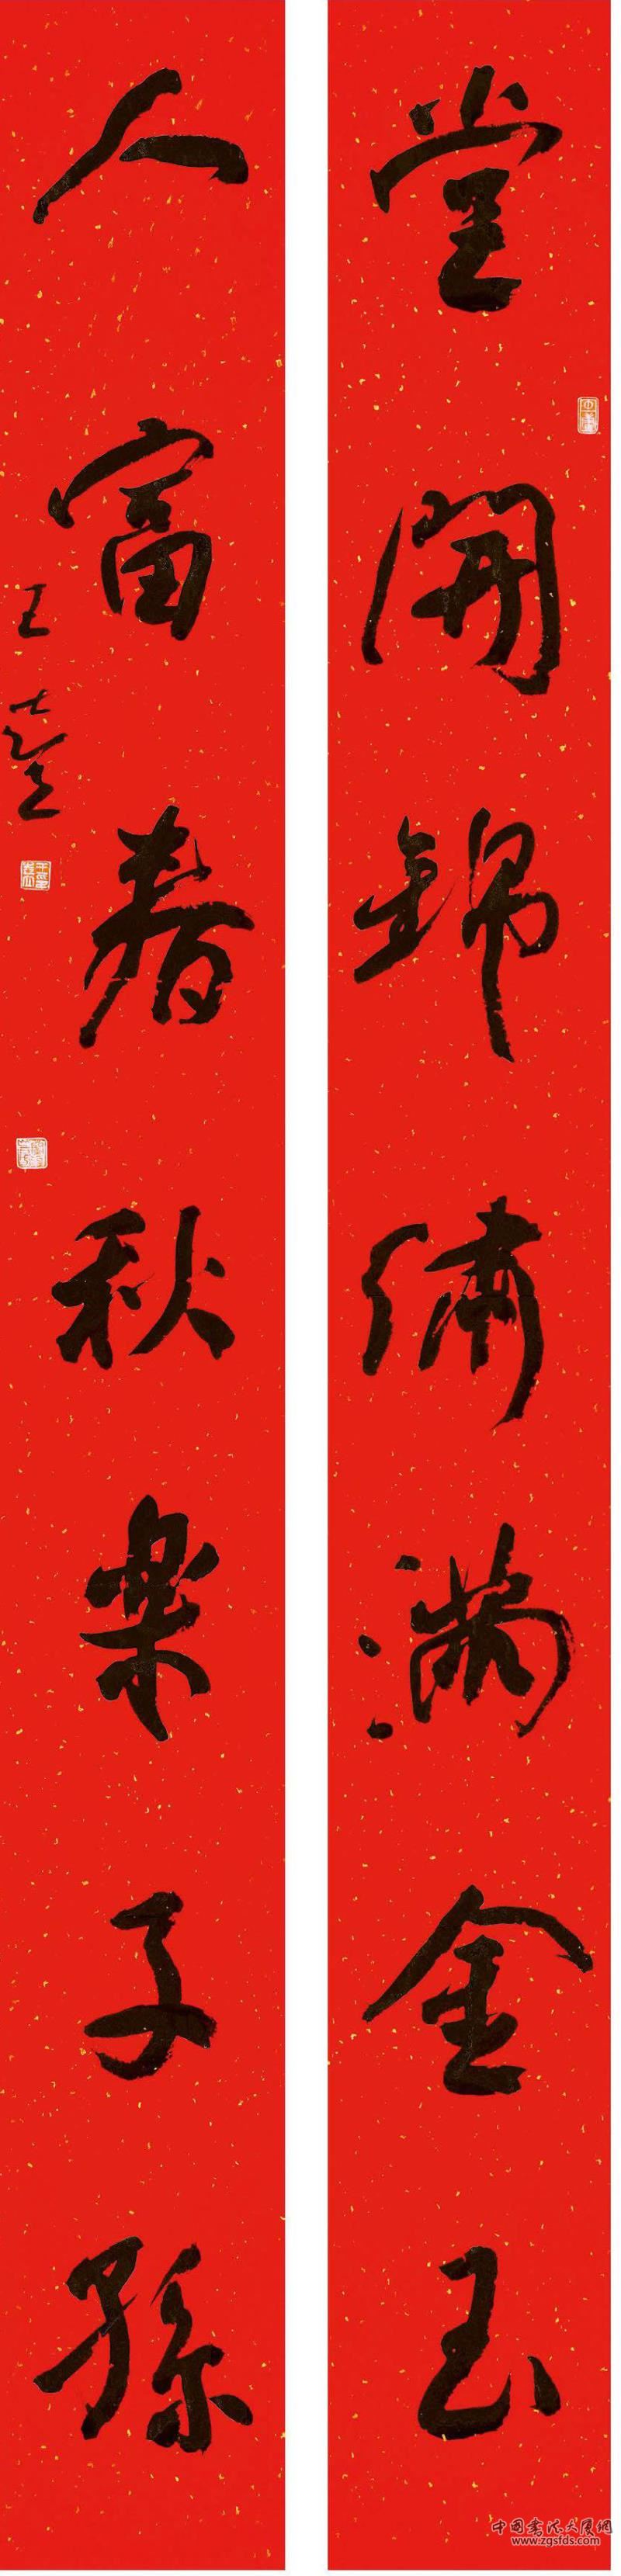 堂開錦绣满金玉
人富春秋楽子孫
王
中国书法大展网
www.zgsfds.com